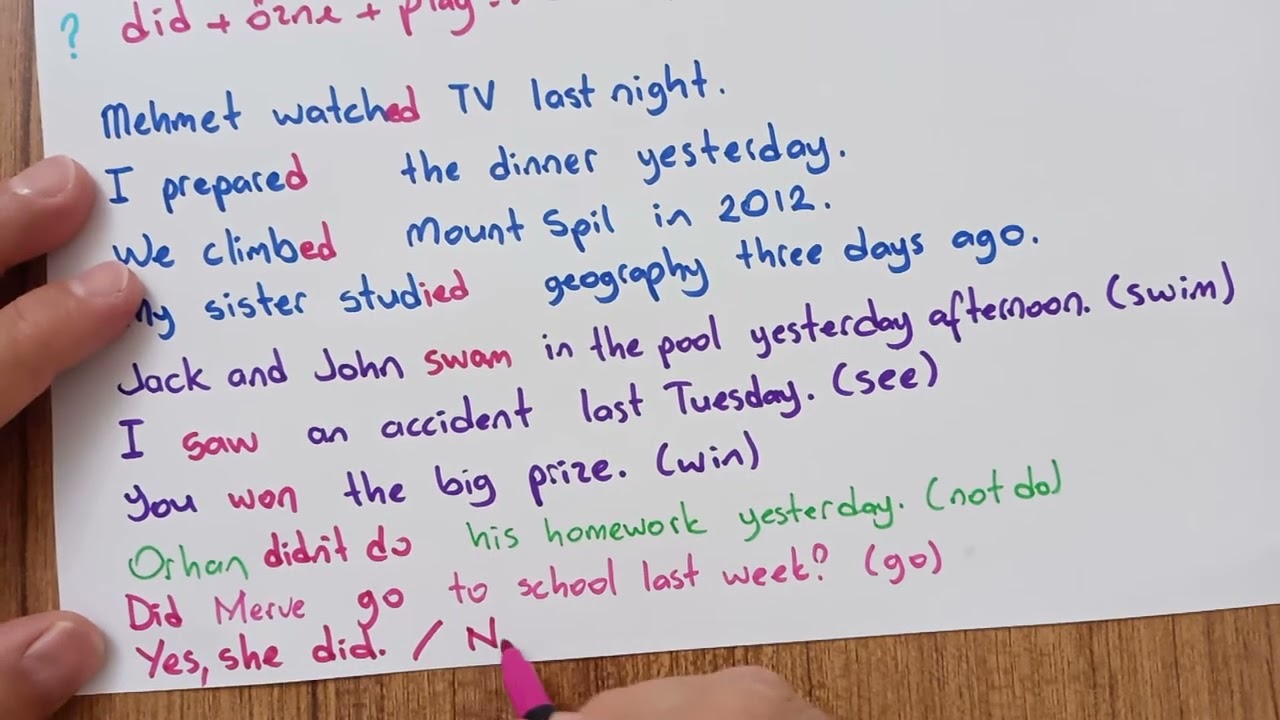 ? did + özne + play
Mehmet watched TV last night.
I prepared the dinner yesterday.
We climbed Mount Spil in 2012.
My sister studied geography three days ago.
Jack and John swam in the pool yesterday afternoon. (swim)
I saw an accident last Tuesday. (see)
You won the big prize. (win)
Orhan didn't do his homework yesterday. (not do)
Did Merve go to school last week? (go)
Yes, she did. / N